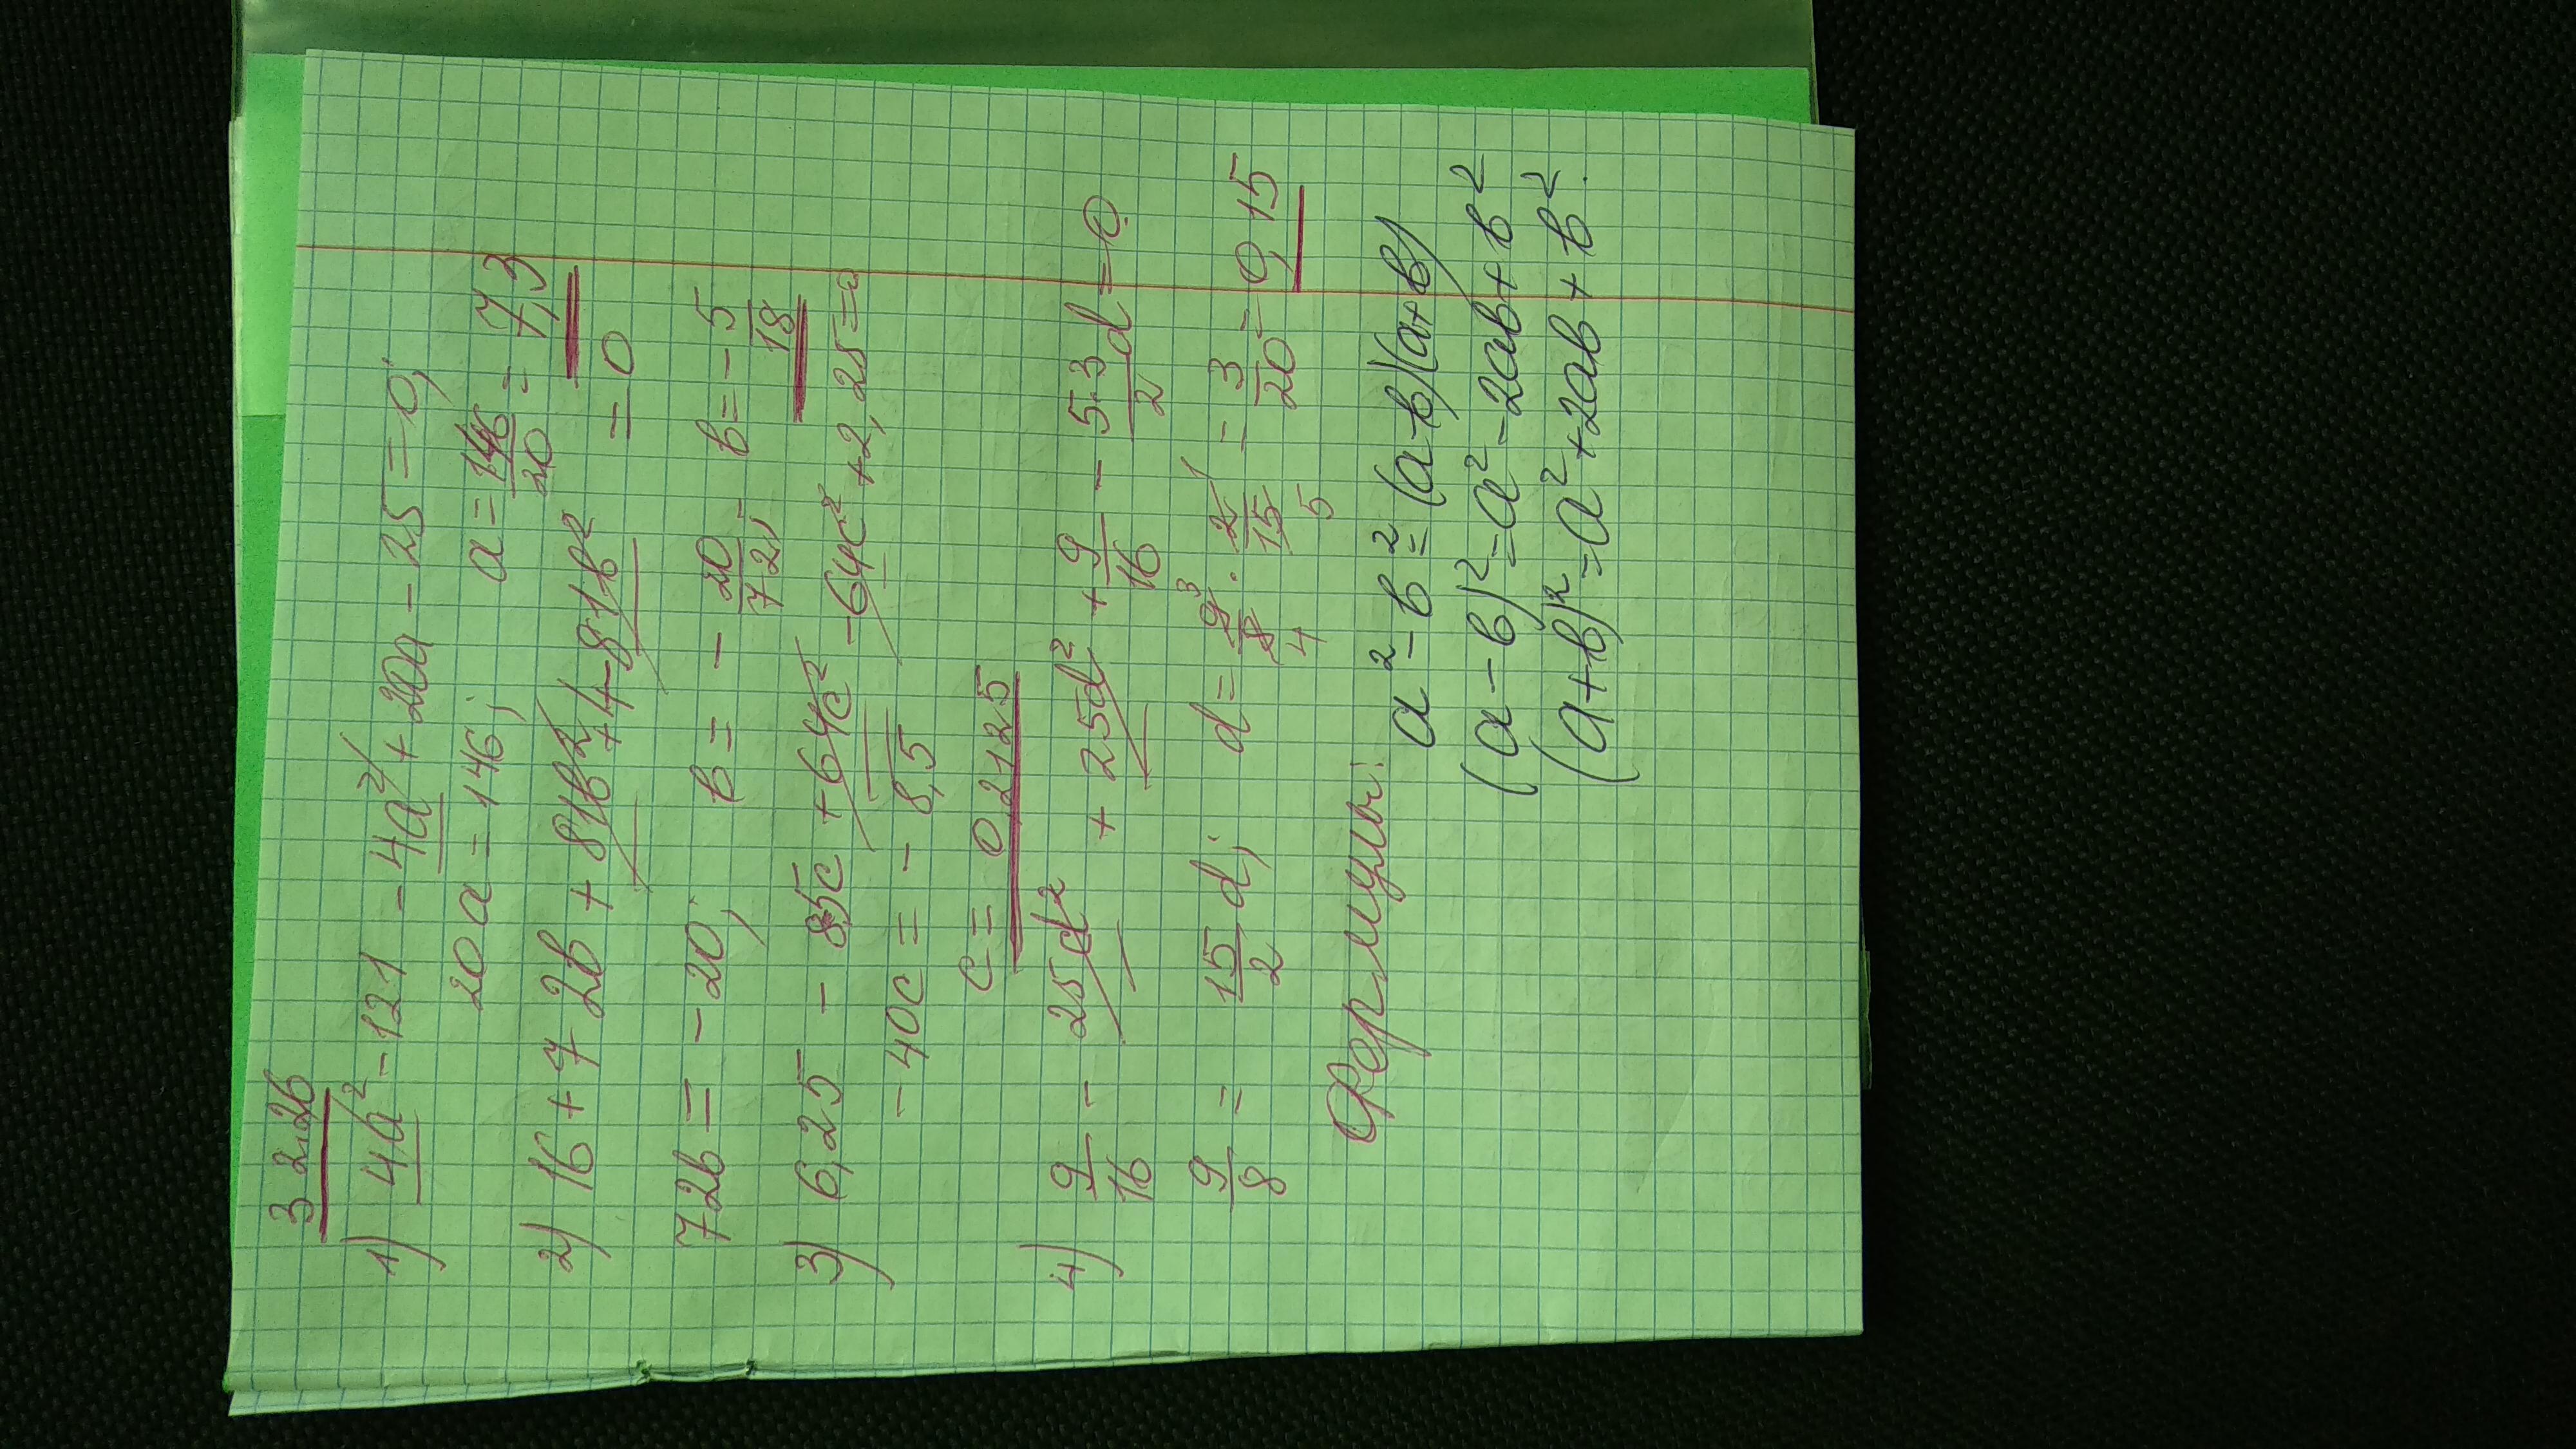 3 226
1) 4a² - 121 - 4a² + 20a - 25 = 0;
20a = 146; a = 146/20 = 7,3
2) 16 + 72b + 81b² + 4 - 81b² = 0
72b = -20; b = - 20/72; b = - 5/18
3) 6,25 - 8,5c + 64c² - 64c² + 2,25 = 0
-40c = -8,5
c = 0,2125
4) 9/16 - 25d² + 25d² + 9/16 - 5·3/2 d = 0
9/8 = 15/2 d; d = 9³/8₄ · 2¹/15₅ = 3/20 = 0,15
Формулы:
a² - b² = (a-b)(a+b)
(a-b)² = a² - 2ab + b²
(a+b)² = a² + 2ab + b².